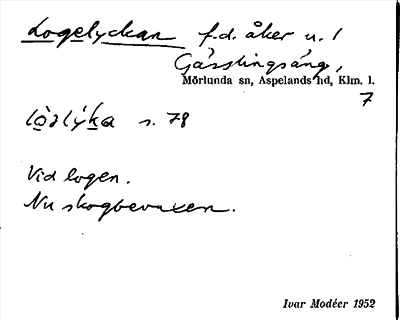 Logelyckan f.d. åker u. 1
Gässlingsäng,
Mörlunda sn, Aspelands hd, Klm. l.
7
s. 78
Vid logen.
Nu skogbevuxen.
Ivar Modéer 1952